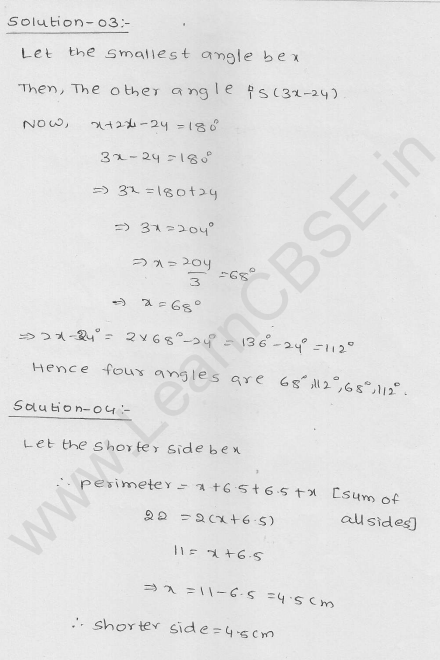 Solution-03:-
Let the smallest angle be x
Then, The other angle is (3x-24)
Now, x+2x-24 = 180°
3x-24 = 180°
⇒ 3x = 180+24
⇒ 3x = 204°
⇒ x = 204/3 = 68°
⇒ x = 68°
⇒ 2x-24° = 2×68°-24° = 136°-24° = 112°
Hence four angles are 68°,112°,68°,112°.
Solution-04:-
Let the shorter side be x
∴ perimeter = x+6.5+6.5+x [sum of all sides]
22 = 2(x+6.5)
11 = x+6.5
⇒ x = 11-6.5 = 4.5cm
∴ shorter side = 4.5cm
www.LearnCBSE.in